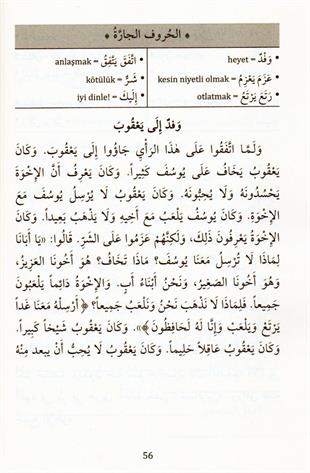 * الحُروف الجارَّةُ *
• وَفْدٌ = heyet • اتَّفَقَ يَتَّفِقُ = anlaşmak
• عَزَمَ يَعْزِمُ = kesin niyetli olmak • شَرٌّ = kötülük
• رَتَعَ يَرْتَعُ = otlatmak • إِلَيْكَ = iyi dinle!
وَفدٌ إِلَى يَعْقُوبَ
وَلَمَّا اتَّفَقُوا عَلَى هٰذَا الرَّأْيِ جَاؤُوا إِلَى يَعْقُوبَ. وَكَانَ
يَعْقُوبُ يَخَافُ عَلَى يُوسُفَ كَثِيراً. وَكَانَ يَعْرِفُ أَنَّ الإِخْوَةَ
يَحْسُدُونَهُ وَلَا يُحِبُّونَهُ. وَكَانَ يَعْقُوبُ لَا يُرْسِلُ يُوسُفَ مَعَ
الإِخْوَةِ. وَكَانَ يُوسُفُ يَلْعَبُ مَعَ أَخِيهِ وَلَا يَذْهَبُ بَعِيداً. وَكَانَ
الإِخْوَةُ يَعْرِفُونَ ذٰلِكَ، وَلٰكِنَّهُمْ عَزَمُوا عَلَى الشَّرِّ. قَالُوا: «يَا أَبَانَا
لِمَاذَا لَا تُرْسِلُ مَعَنَا يُوسُفَ؟ مَاذَا تَخَافُ؟ هُوَ أَخُونَا العَزِيزُ،
وَهُوَ أَخُونَا الصَّغِيرُ، وَنَحْنُ أَبْنَاءُ أَبٍ. وَالإِخْوَةُ دَائِماً يَلْعَبُونَ
جَمِيعاً. فَلِمَاذَا لَا نَذْهَبُ نَحْنُ وَنَلْعَبُ جَمِيعاً؟ ﴿أَرْسِلْهُ مَعَنَا غَداً
يَرْتَعْ وَيَلْعَبْ وَإِنَّا لَهُ لَحَافِظُونَ﴾». وَكَانَ يَعْقُوبُ شَيْخاً كَبِيراً.
وَكَانَ يَعْقُوبُ عَاقِلاً حَلِيماً. وَكَانَ يَعْقُوبُ لَا يُحِبُّ أَنْ يبعد مِنْهُ
56